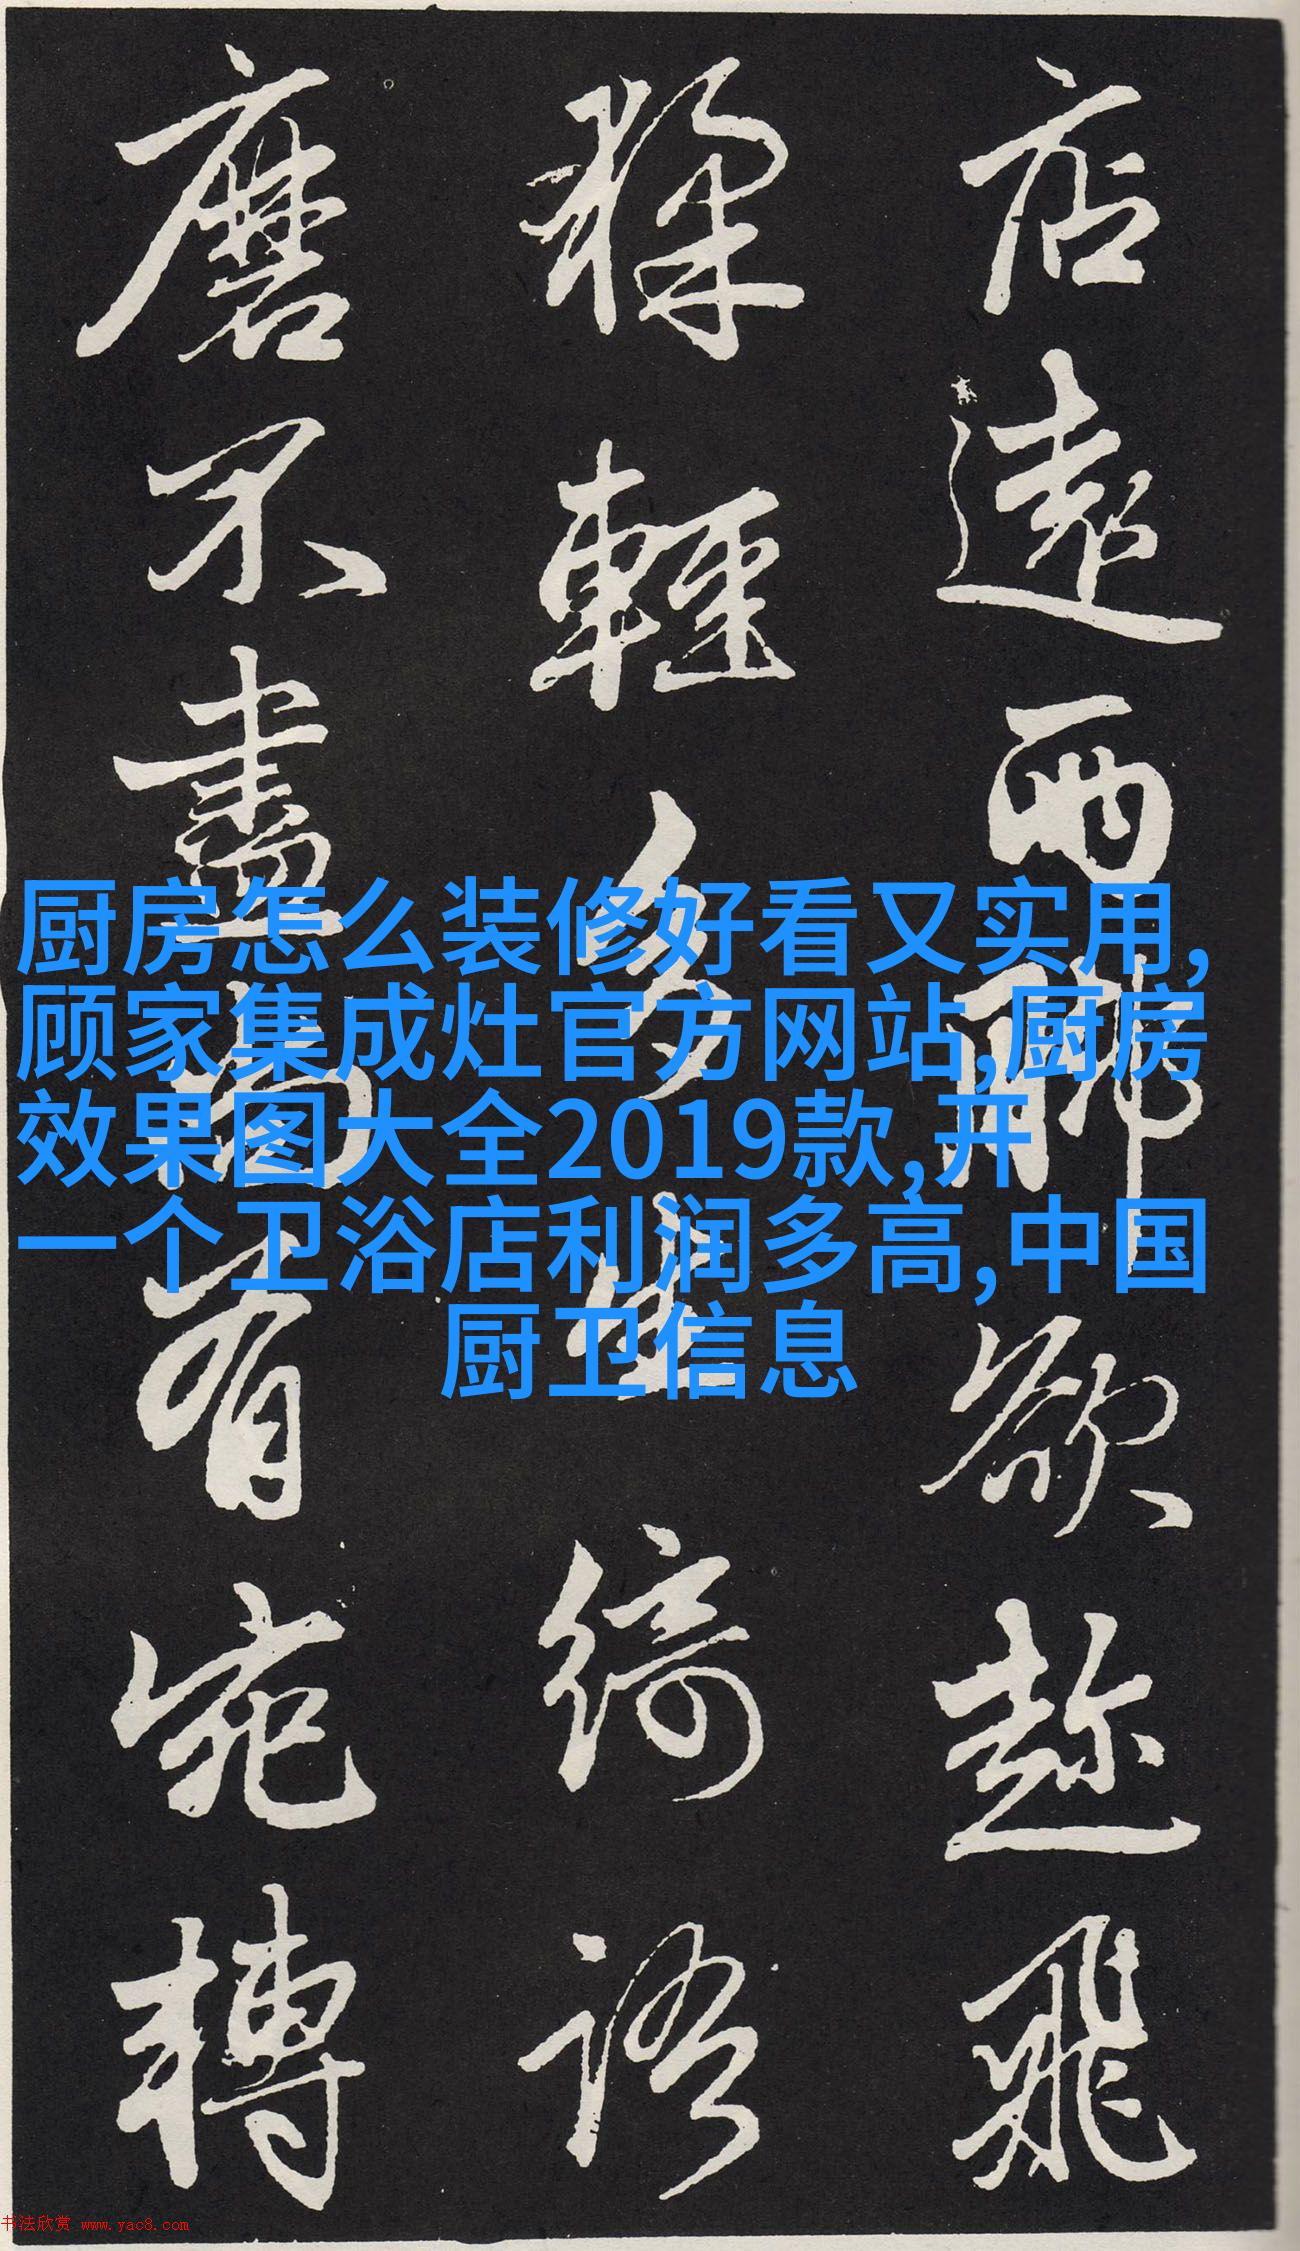 店遠兩脚欲趁飛
猱輕多生綺語
磨不盡尚有宛轉
厨房怎么装修好看又实用,
顾家集成灶官方网站,厨房
效果图大全2019款,开
一个卫浴店利润多高,中国
厨卫信息
书法欣赏 www.yac8.com